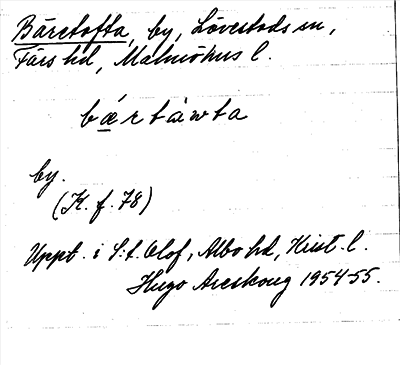 Bäretofta, by, Lövestads sn,
Färs hd, Malmöhus l.
bǽrtàwta
by.
(K. f. 78)
Uppt. i S:t Olof, Albo hd, Krist. l.
Hugo Areskoug 1954-55.